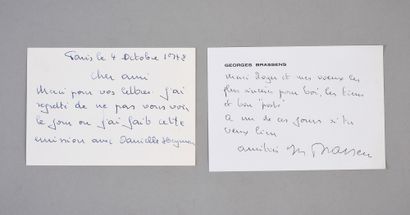 Paris le 4 Octobre 1978
Cher ami
Merci pour vos lettres j'ai
regretté de ne pas vous voir
le jour où j'ai fait cette
émission avec Danielle
GEORGES BRASSENS
Merci Roger et mes voeux les
plus sincères pour toi, les tiens
et ton "poste"
A un de ces jours si tu
veux bien
amitiés G Brassens